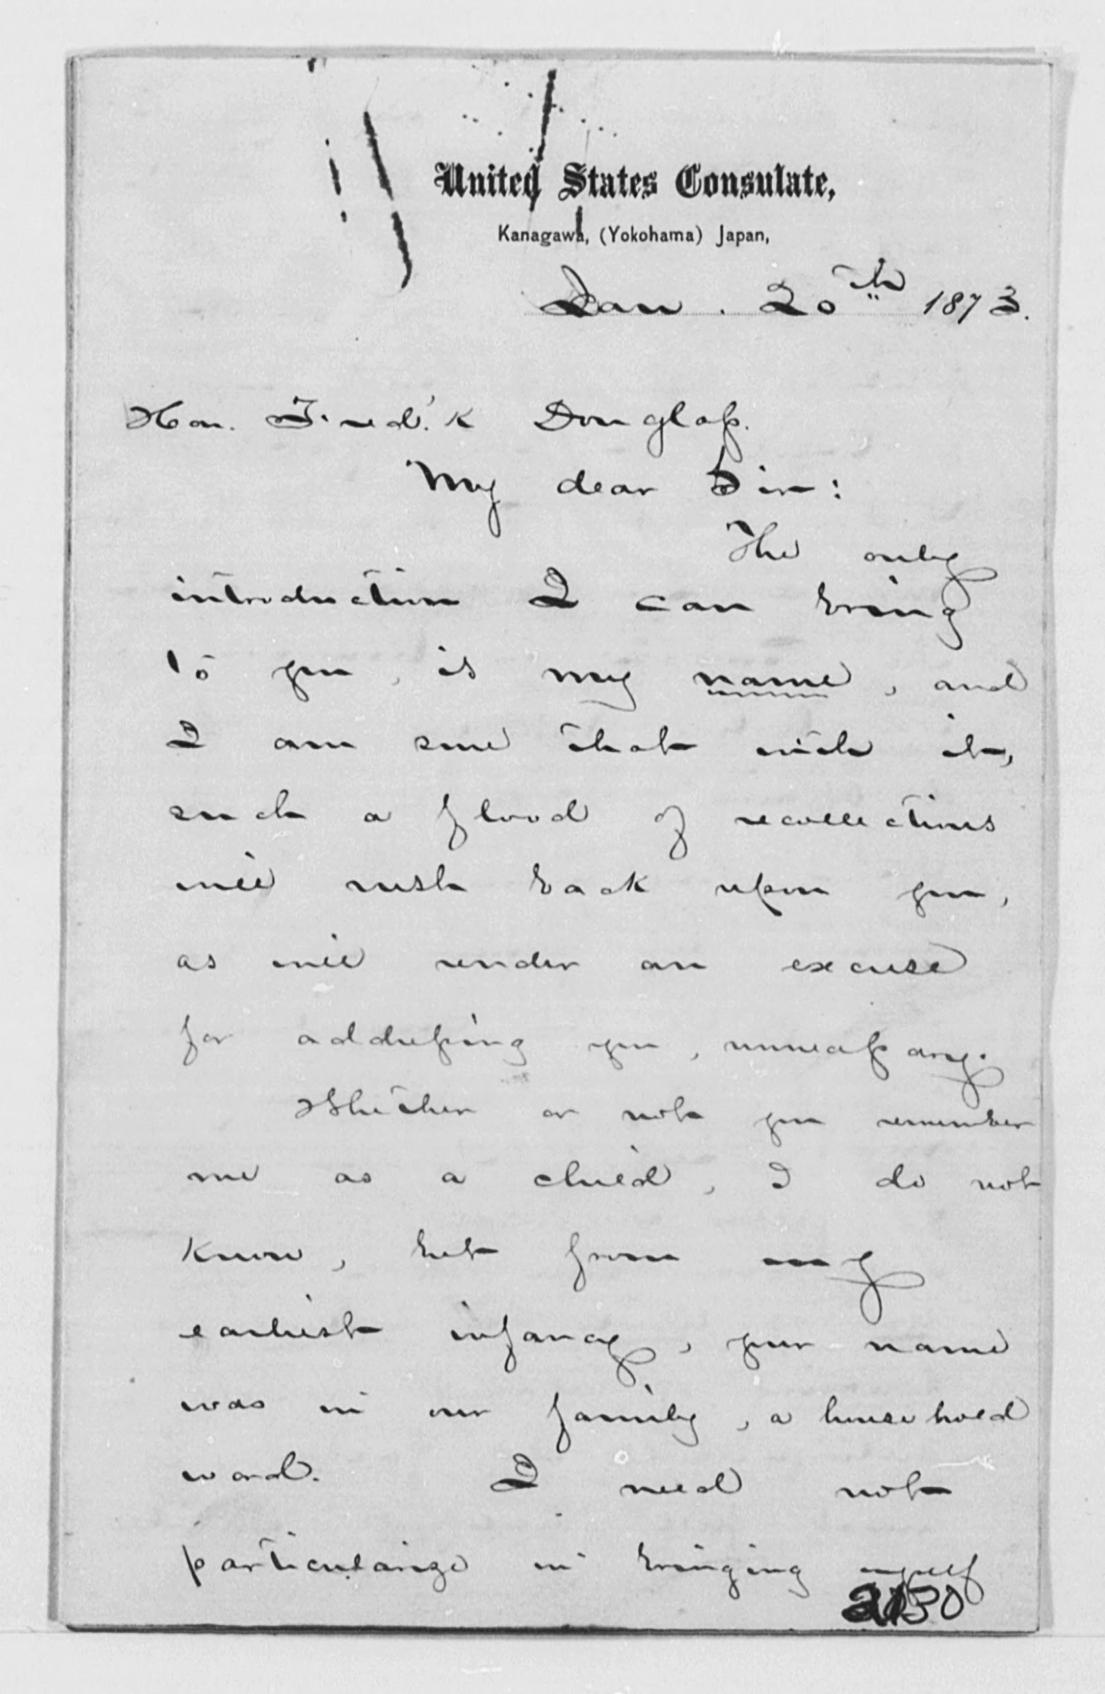 United States Consulate,
Kanagawa, (Yokohama) Japan,
Jan. 20th 1873.
Hon. Fred'k Douglass.
My dear Sir:
The only
introduction I can bring
to you, is my name, and
I am sure that with it,
such a flood of recollections
will rush back upon you,
as will render an excuse
for addressing you, unnecessary.
Whether or not you remember
me as a child, I do not
know, but from my
earliest infancy, your name
was in our family, a household
word. I need not
particularize in bringing myself
2130